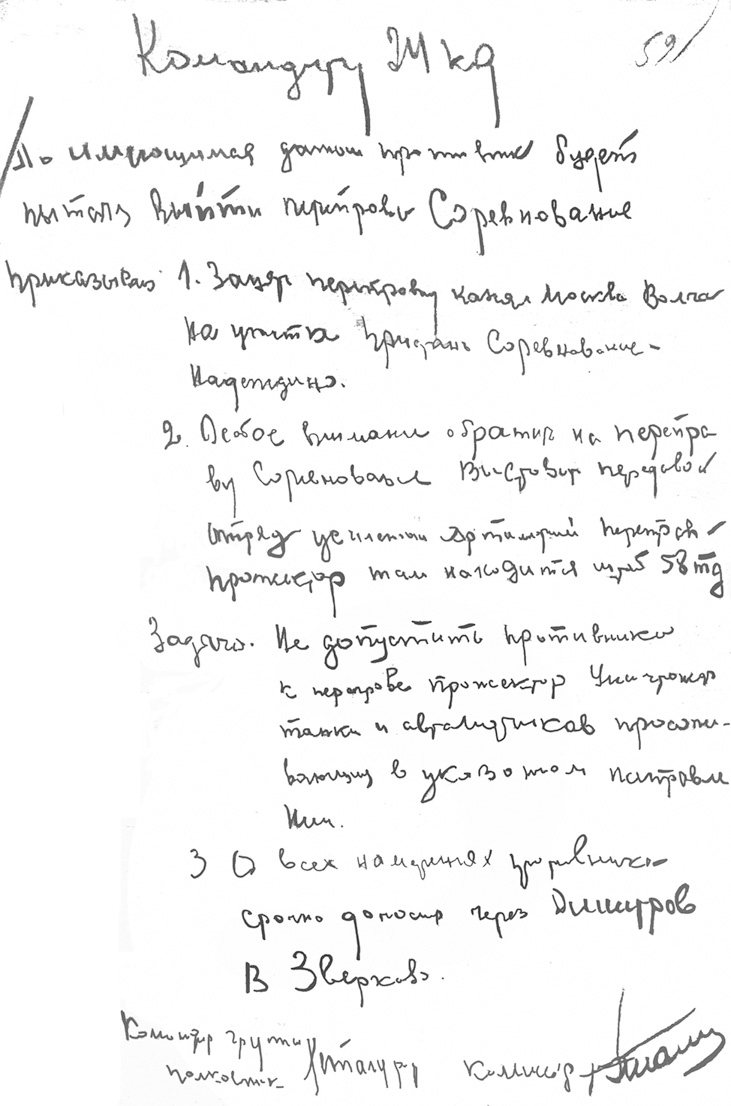 Командиру кд
59
По имеющимся данным противник будет
пытать выйти переправы Соревнование
Приказываю 1. Занять переправу канал Москва Волга
на участке Соревнование-
Надеждино.
2. Особое внимание обратить на перепра
ву Соревнование Выставить передовой
отряд усиленный артиллерией
прожектор там находится штаб 58 тд
Задача. Не допустить противника
к переправе прожектор Уничтожать
танки и автоматчиков просачи-
вающих в указанном направле
нии.
3 О всех противника
срочно доносить через Димитров
в Зверково.
Командир группы
полковник комиссар